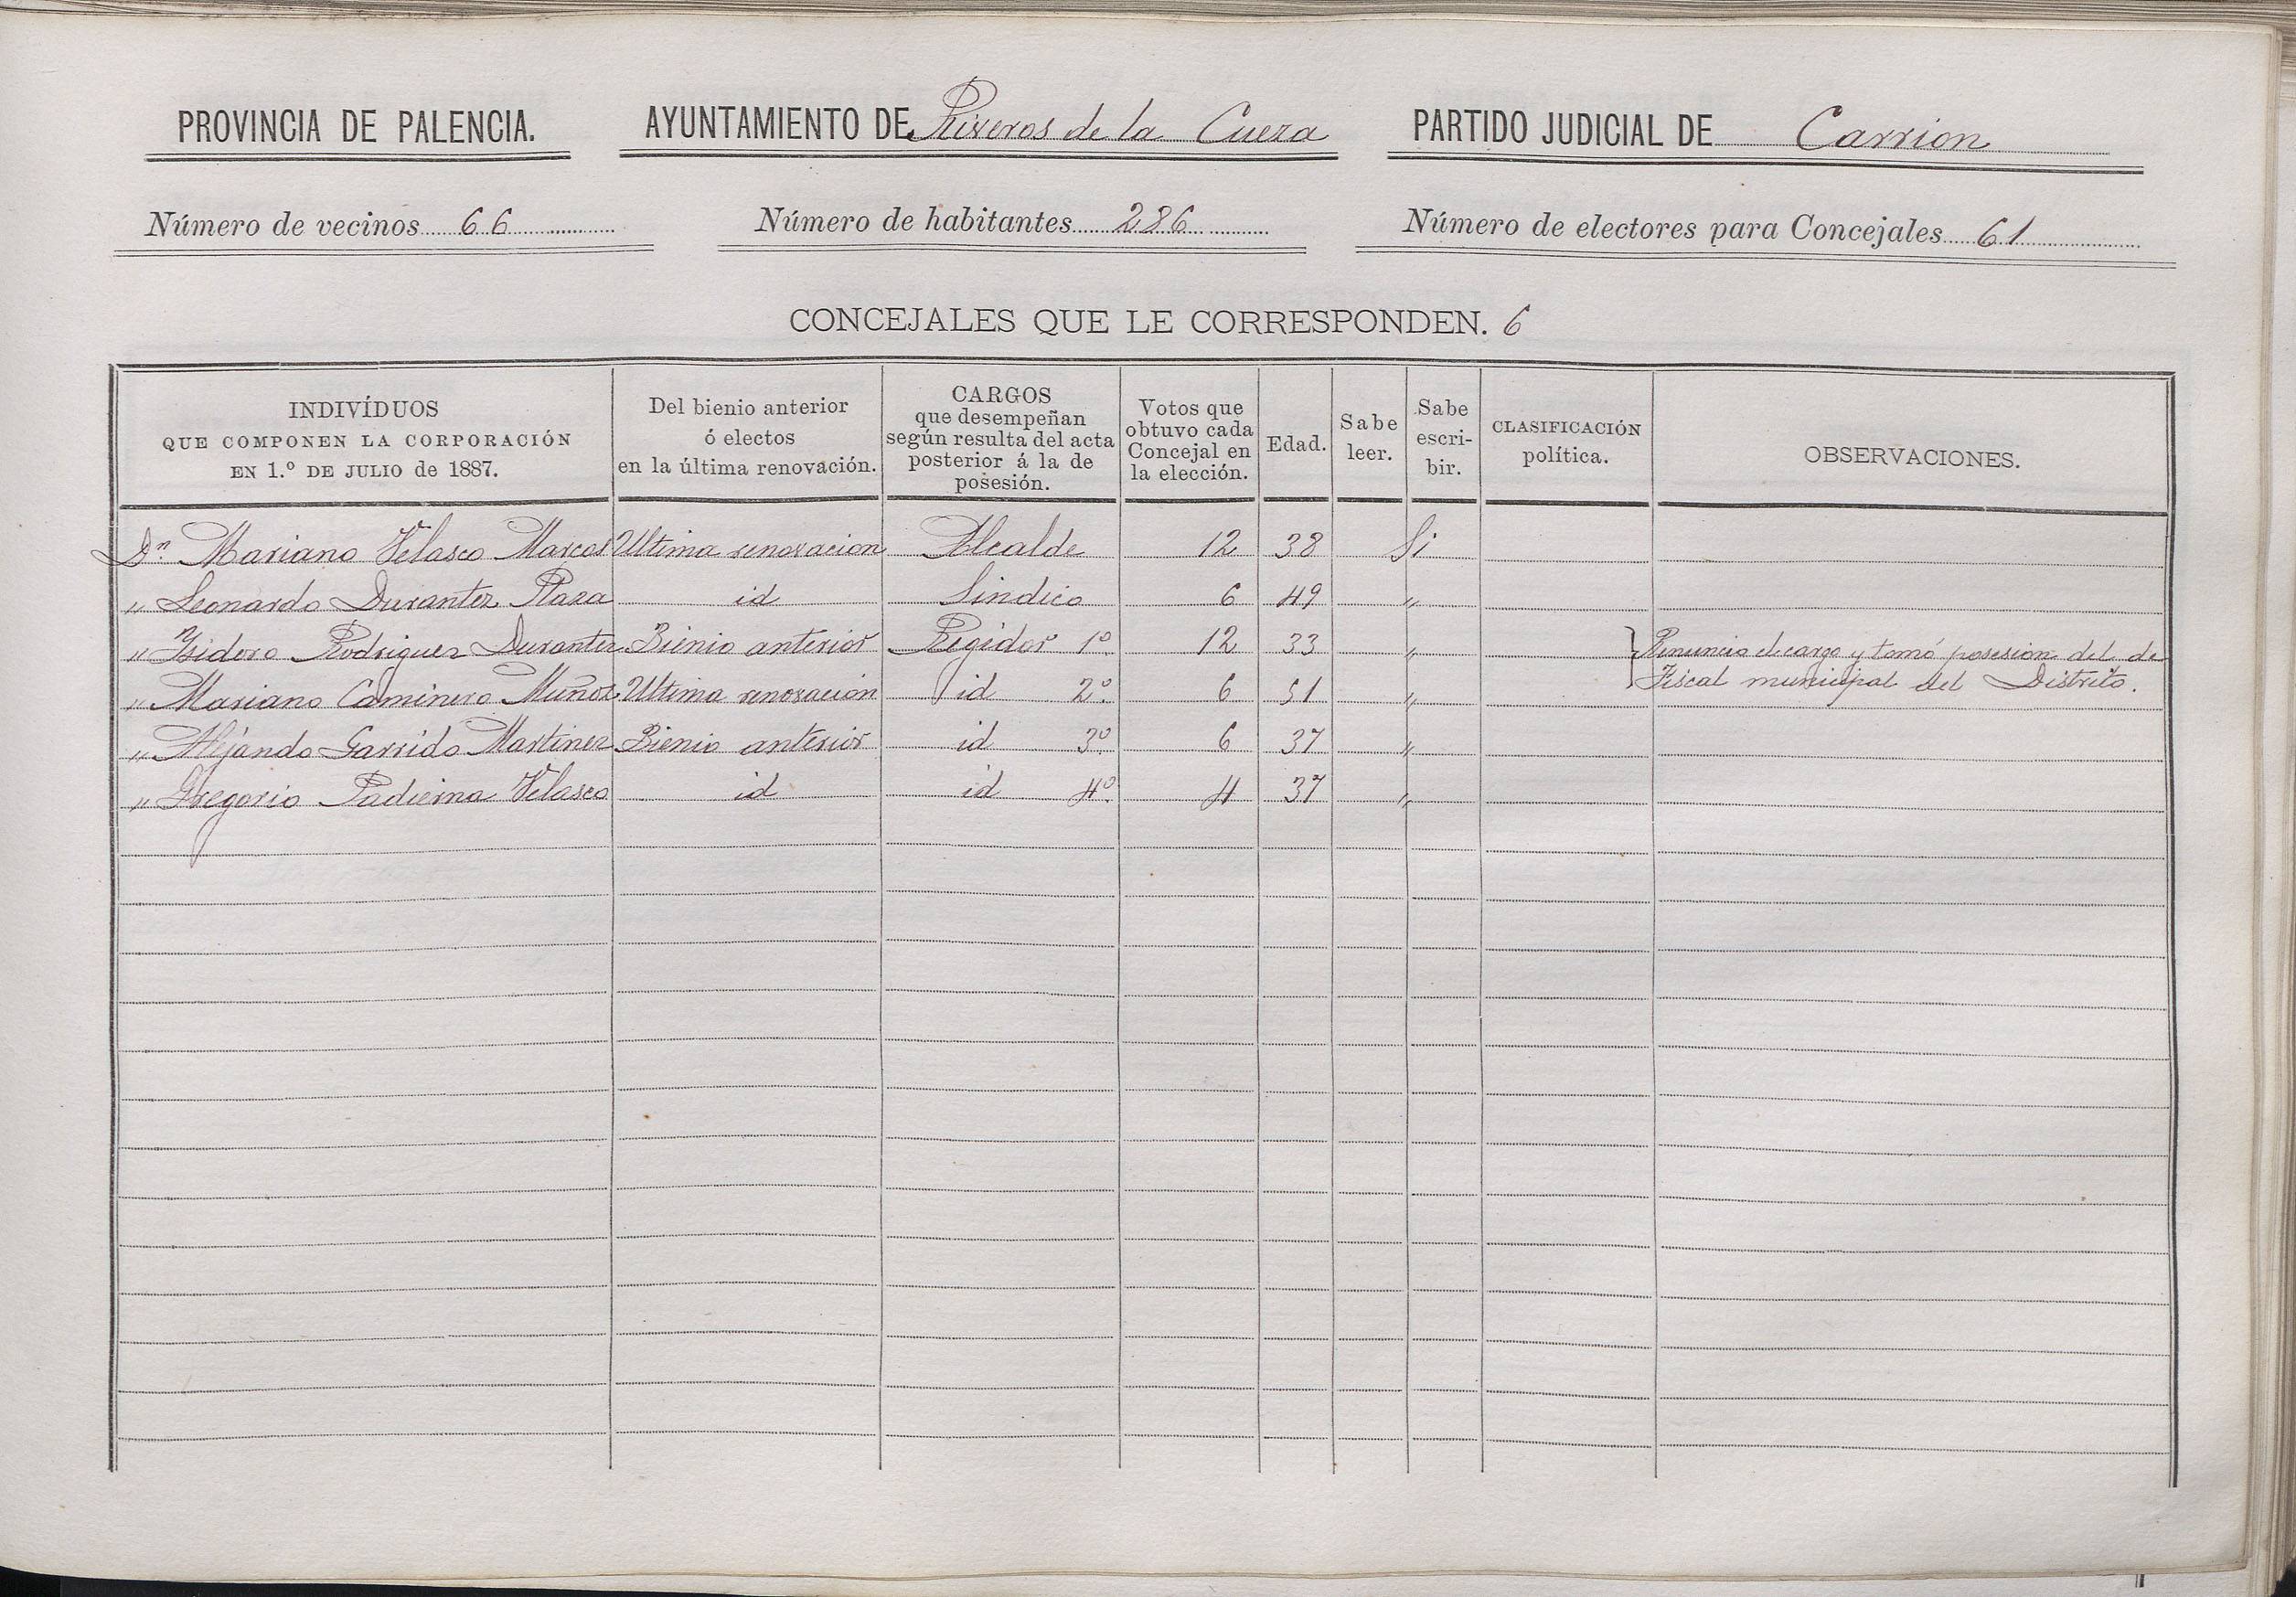 PROVINCIA DE PALENCIA. AYUNTAMIENTO DE Riveros de la Cueza PARTIDO JUDICIAL DE Carrion
Número de vecinos 66 Número de habitantes 286 Número de electores para Concejales 61
CONCEJALES QUE LE CORRESPONDEN. 6
INDIVÍDUOS
QUE COMPONEN LA CORPORACIÓN
EN 1.º DE JULIO de 1887.
Del bienio anterior
ó electos
en la última renovación.
CARGOS
que desempeñan
según resulta del acta
posterior á la de
posesión.
Votos que
obtuvo cada
Concejal en
la elección.
Edad.
Sabe
leer.
Sabe
escri-
bir.
CLASIFICACIÓN
política.
OBSERVACIONES.
Dn. Mariano Velasco Marcos Ultima renovacion Alcalde 12 38 Si
" Leonardo Durantez Plaza id Sindico 6 49 "
" Isidoro Rodriguez Durantez Bienio anterior Regidor 1º 12 33 " Renuncio el cargo y tomó posesion del de
" Mariano Caminero Muñoz Ultima renovación id 2º. 6 51 " Fiscal municipal del Distrito.
" Alejando Garrido Martinez Bienio anterior id 3º. 6 37 "
" Gregorio Padierna Velasco id id 4º. 4 37 "